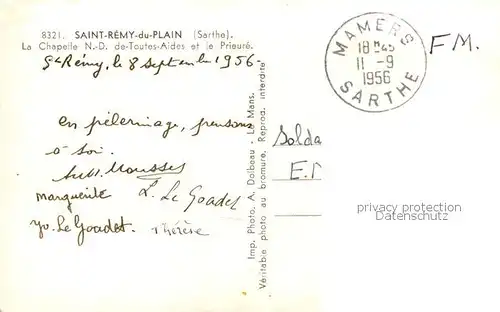 8321. SAINT-RÉMY-du-PLAIN (Sarthe).
La Chapelle N.-D. de-Toutes-Aides et le Prieuré.
St Rémy, le 8 septembre 1956
en pèlerinage, pensons
à toi.
Mousses
marguerite L. Le Goadec
yv. Le Goadet. Thérèse
Imp. Photo. A. Dolbeau - Le Mans.
Véritable photo au bromure. Reprod. interdite
MAMERS
18 H 45
11 - 9
1956
SARTHE
F M.
Solda
E.
privacy protection
Datenschutz